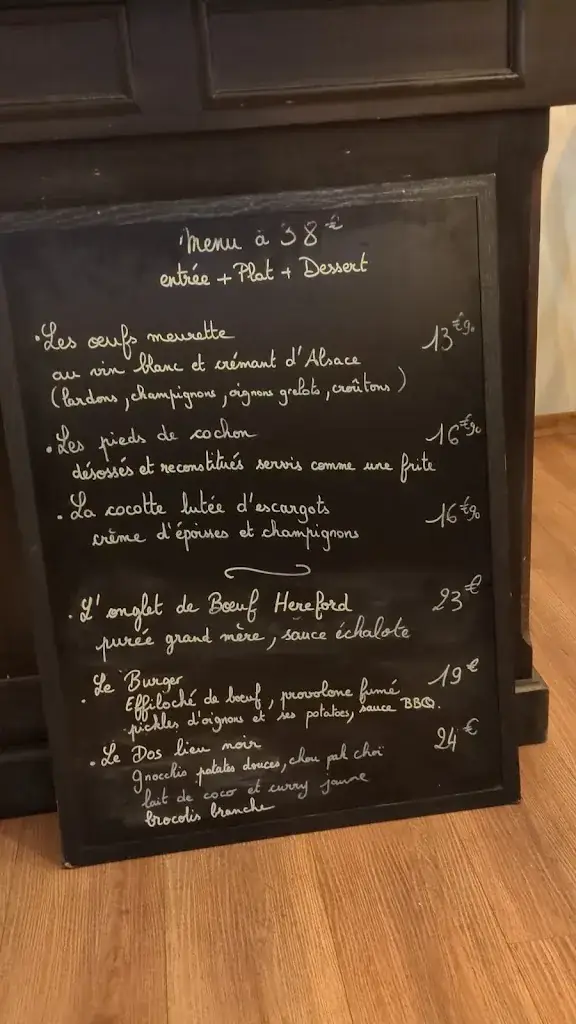 Menu à 38 €
entrée + Plat + Dessert
• Les œufs meurette 13 €90
au vin blanc et crémant d'Alsace
(lardons, champignons, oignons grelots, croûtons)
• Les pieds de cochon 16 €90
désossés et reconstitués servis comme une frite
• La cocotte lutée d'escargots 16 €90
crème d'époisses et champignons
• L'onglet de Bœuf Hereford 23 €
purée grand mère, sauce échalote
• Le Burger 19 €
Effiloché de bœuf, provolone fumé
pickles d'oignons et ses potatoes, sauce BBQ.
• Le Dos lieu noir 24 €
gnocchis patates douces, chou pak choï
lait de coco et curry jaune
brocolis branche